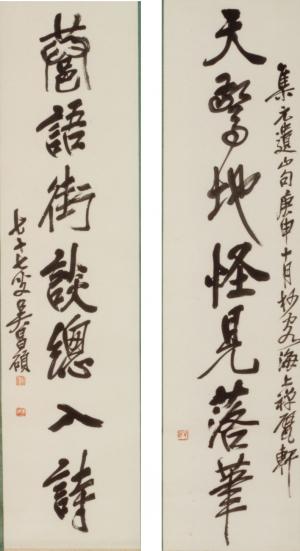 集元遺山句庚申十月杪客海上禪甓軒
天驚地怪見落筆
巷語街談總入詩
七十七叟吳昌碩